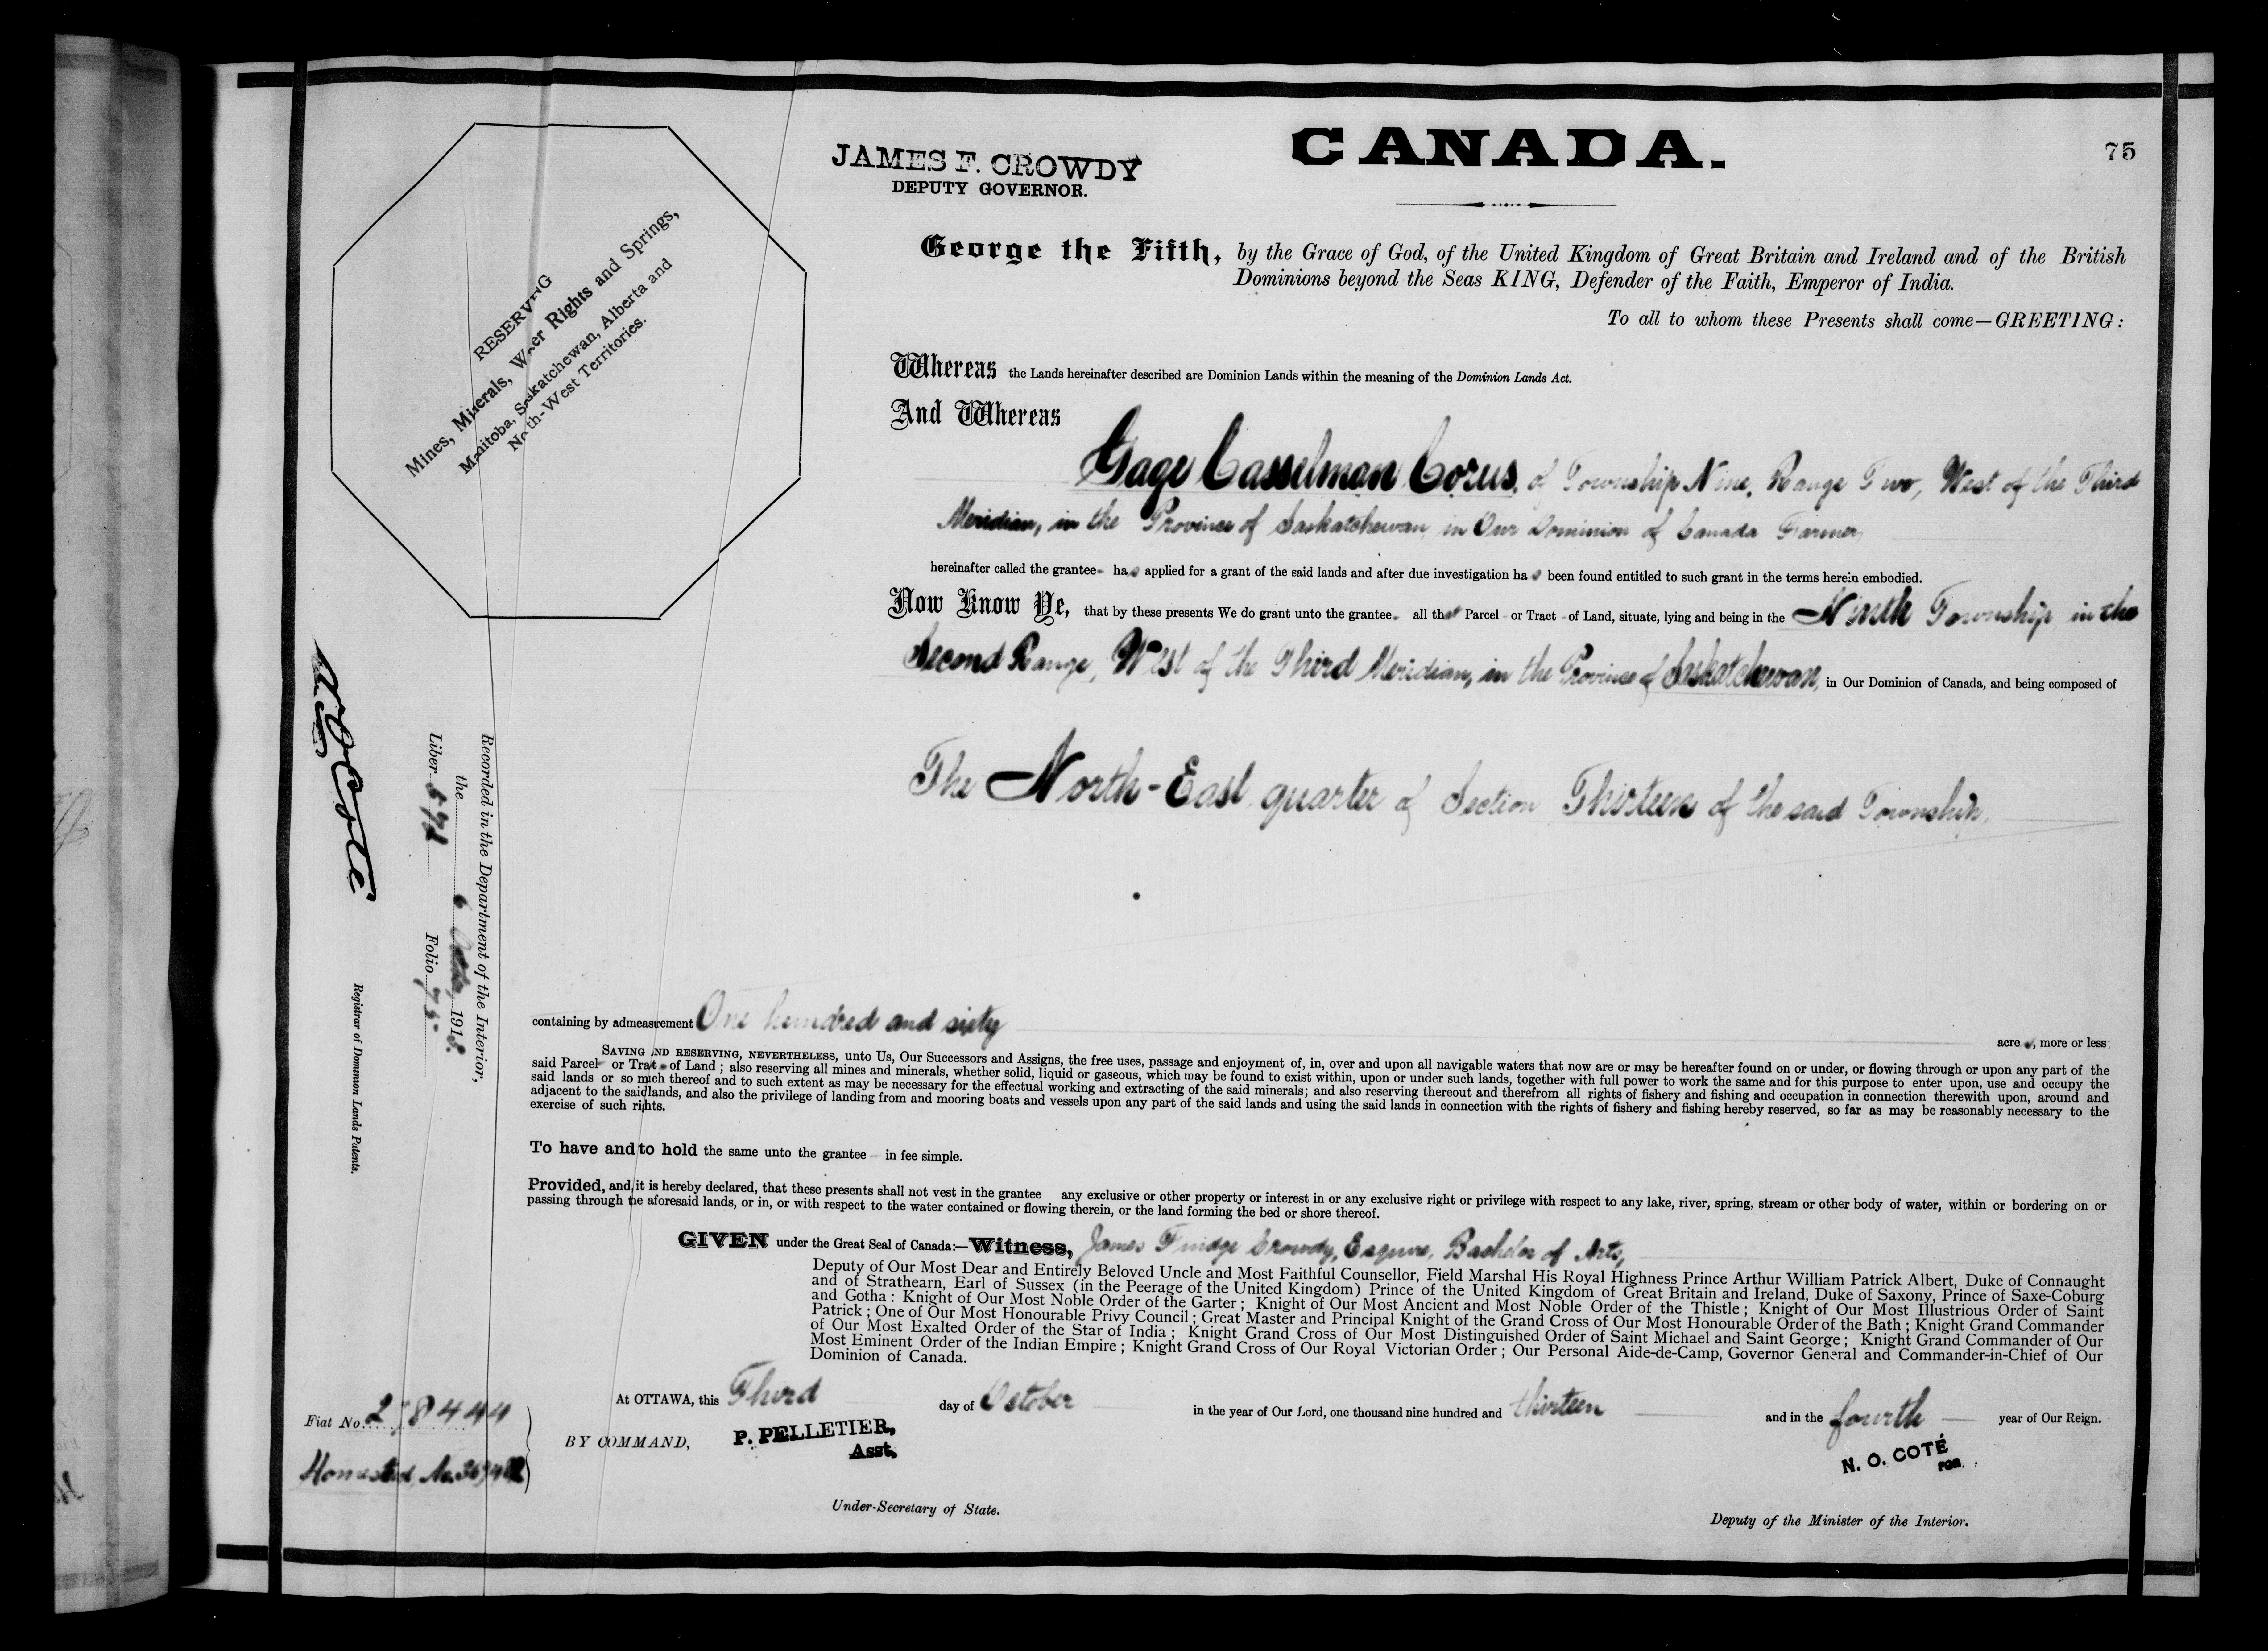 CANADA.
75
JAMES F. CROWDY
DEPUTY GOVERNOR.
RESERVING
Mines, Minerals, Water Rights and Springs,
Manitoba, Saskatchewan, Alberta and
North-West Territories.
George the Fifth, by the Grace of God, of the United Kingdom of Great Britain and Ireland and of the British
Dominions beyond the Seas KING, Defender of the Faith, Emperor of India.
To all to whom these Presents shall come—GREETING:
Whereas the Lands hereinafter described are Dominion Lands within the meaning of the Dominion Lands Act.
And Whereas
Gage Casselman Corus, of Township Nine, Range Two, West of the Third
Meridian, in the Province of Saskatchewan, in Our Dominion of Canada Farmer,
hereinafter called the grantee has applied for a grant of the said lands and after due investigation has been found entitled to such grant in the terms herein embodied.
Now Know Ye, that by these presents We do grant unto the grantee all that Parcel or Tract of Land, situate, lying and being in the Ninth Township in the
Second Range, West of the Third Meridian, in the Province of Saskatchewan, in Our Dominion of Canada, and being composed of
The North-East quarter of Section Thirteen of the said Township,
containing by admeasurement One hundred and sixty acres, more or less;
SAVING AND RESERVING, NEVERTHELESS, unto Us, Our Successors and Assigns, the free uses, passage and enjoyment of, in, over and upon all navigable waters that now are or may be hereafter found on or under, or flowing through or upon any part of the
said Parcel or Tract of Land; also reserving all mines and minerals, whether solid, liquid or gaseous, which may be found to exist within, upon or under such lands, together with full power to work the same and for this purpose to enter upon, use and occupy the
said lands or so much thereof and to such extent as may be necessary for the effectual working and extracting of the said minerals; and also reserving thereout and therefrom all rights of fishery and fishing and occupation in connection therewith upon, around and
adjacent to the said lands, and also the privilege of landing from and mooring boats and vessels upon any part of the said lands and using the said lands in connection with the rights of fishery and fishing hereby reserved, so far as may be reasonably necessary to the
exercise of such rights.
To have and to hold the same unto the grantee in fee simple.
Provided, and it is hereby declared, that these presents shall not vest in the grantee any exclusive or other property or interest in or any exclusive right or privilege with respect to any lake, river, spring, stream or other body of water, within or bordering on or
passing through the aforesaid lands, or in, or with respect to the water contained or flowing therein, or the land forming the bed or shore thereof.
GIVEN under the Great Seal of Canada:—Witness, James Fuidge Crowdy, Esquire, Bachelor of Arts,
Deputy of Our Most Dear and Entirely Beloved Uncle and Most Faithful Counsellor, Field Marshal His Royal Highness Prince Arthur William Patrick Albert, Duke of Connaught
and of Strathearn, Earl of Sussex (in the Peerage of the United Kingdom) Prince of the United Kingdom of Great Britain and Ireland, Duke of Saxony, Prince of Saxe-Coburg
and Gotha: Knight of Our Most Noble Order of the Garter; Knight of Our Most Ancient and Most Noble Order of the Thistle; Knight of Our Most Illustrious Order of Saint
Patrick; One of Our Most Honourable Privy Council; Great Master and Principal Knight of the Grand Cross of Our Most Honourable Order of the Bath; Knight Grand Commander
of Our Most Exalted Order of the Star of India; Knight Grand Cross of Our Most Distinguished Order of Saint Michael and Saint George; Knight Grand Commander of Our
Most Eminent Order of the Indian Empire; Knight Grand Cross of Our Royal Victorian Order; Our Personal Aide-de-Camp, Governor General and Commander-in-Chief of Our
Dominion of Canada.
At OTTAWA, this Third day of October in the year of Our Lord, one thousand nine hundred and thirteen and in the fourth year of Our Reign.
BY COMMAND,
P. PELLETIER,
Asst.
Under-Secretary of State.
N. O. COTÉ
FOR.
Deputy of the Minister of the Interior.
Recorded in the Department of the Interior,
the 6 October, 1913.
Liber Folio 75.
N O Coté
Registrar of Dominion Lands Patents.
Fiat No.
Homestead No.